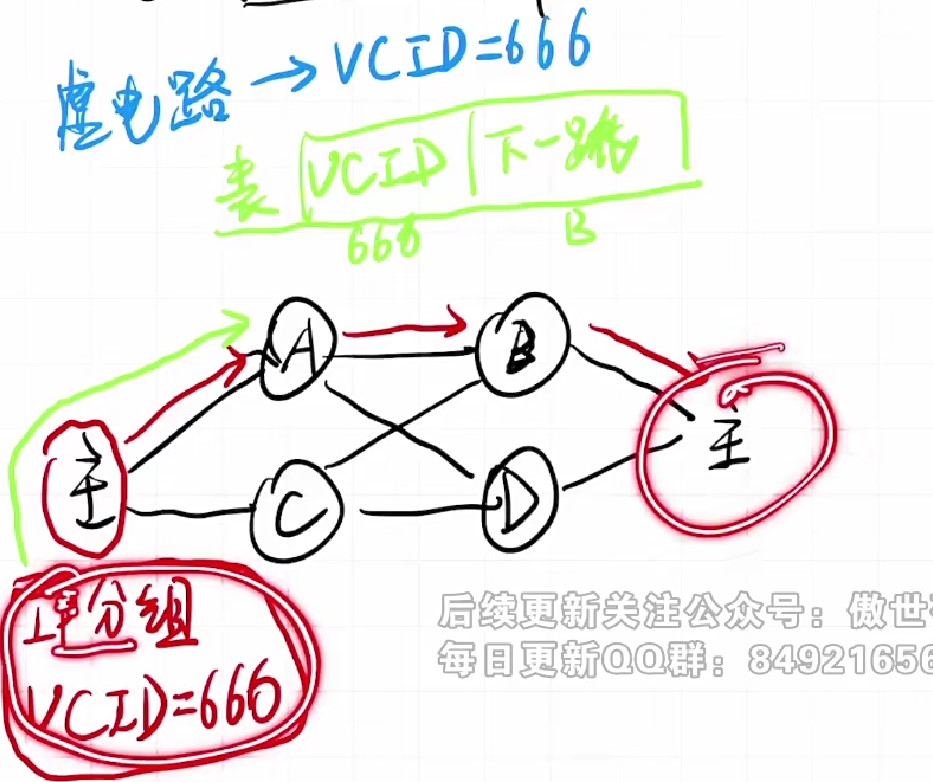 虚电路→VCID=666
表 VCID 下一跳
666 B
A B
主 主
C D
分组
VCID=666
后续更新关注公众号：傲世
每日更新QQ群：84921656